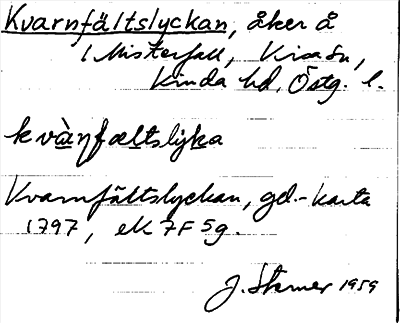 Kvarnfältslyckan, åker å
1 Misterfall, Kisa sn,
Kinda hd, Östg. l.
kvà̱ṇfæltslyḵa
Kvarnfältslyckan, gd.-karta
1797, ek 7F 5g.
J. Starner 1959